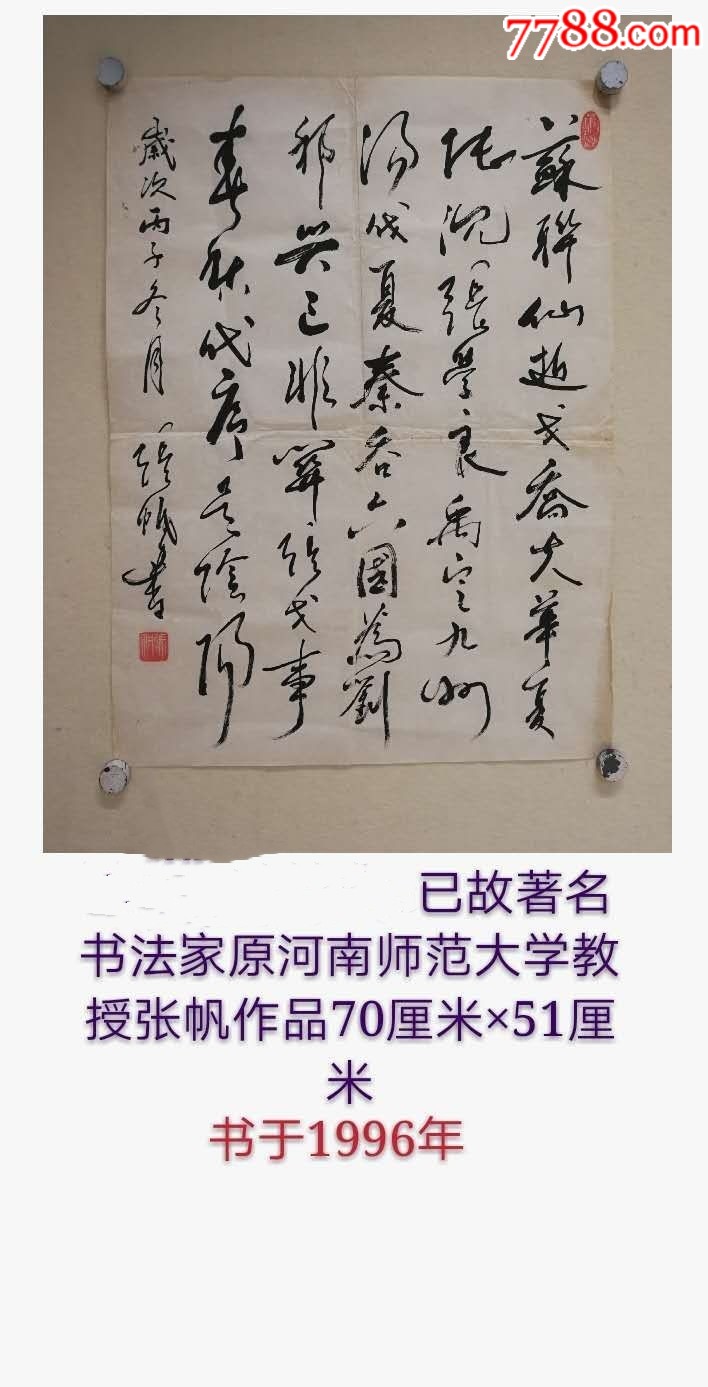 7788.com
蘇聯仙逝戈喬夫華夏
沉張學良禹定九州
湯伐夏秦吞六國為劉
邦興亡非關張戈事
春秋代序是陰陽
歲次丙子冬月張帆書
已故著名
书法家原河南师范大学教
授张帆作品70厘米×51厘
米
书于1996年